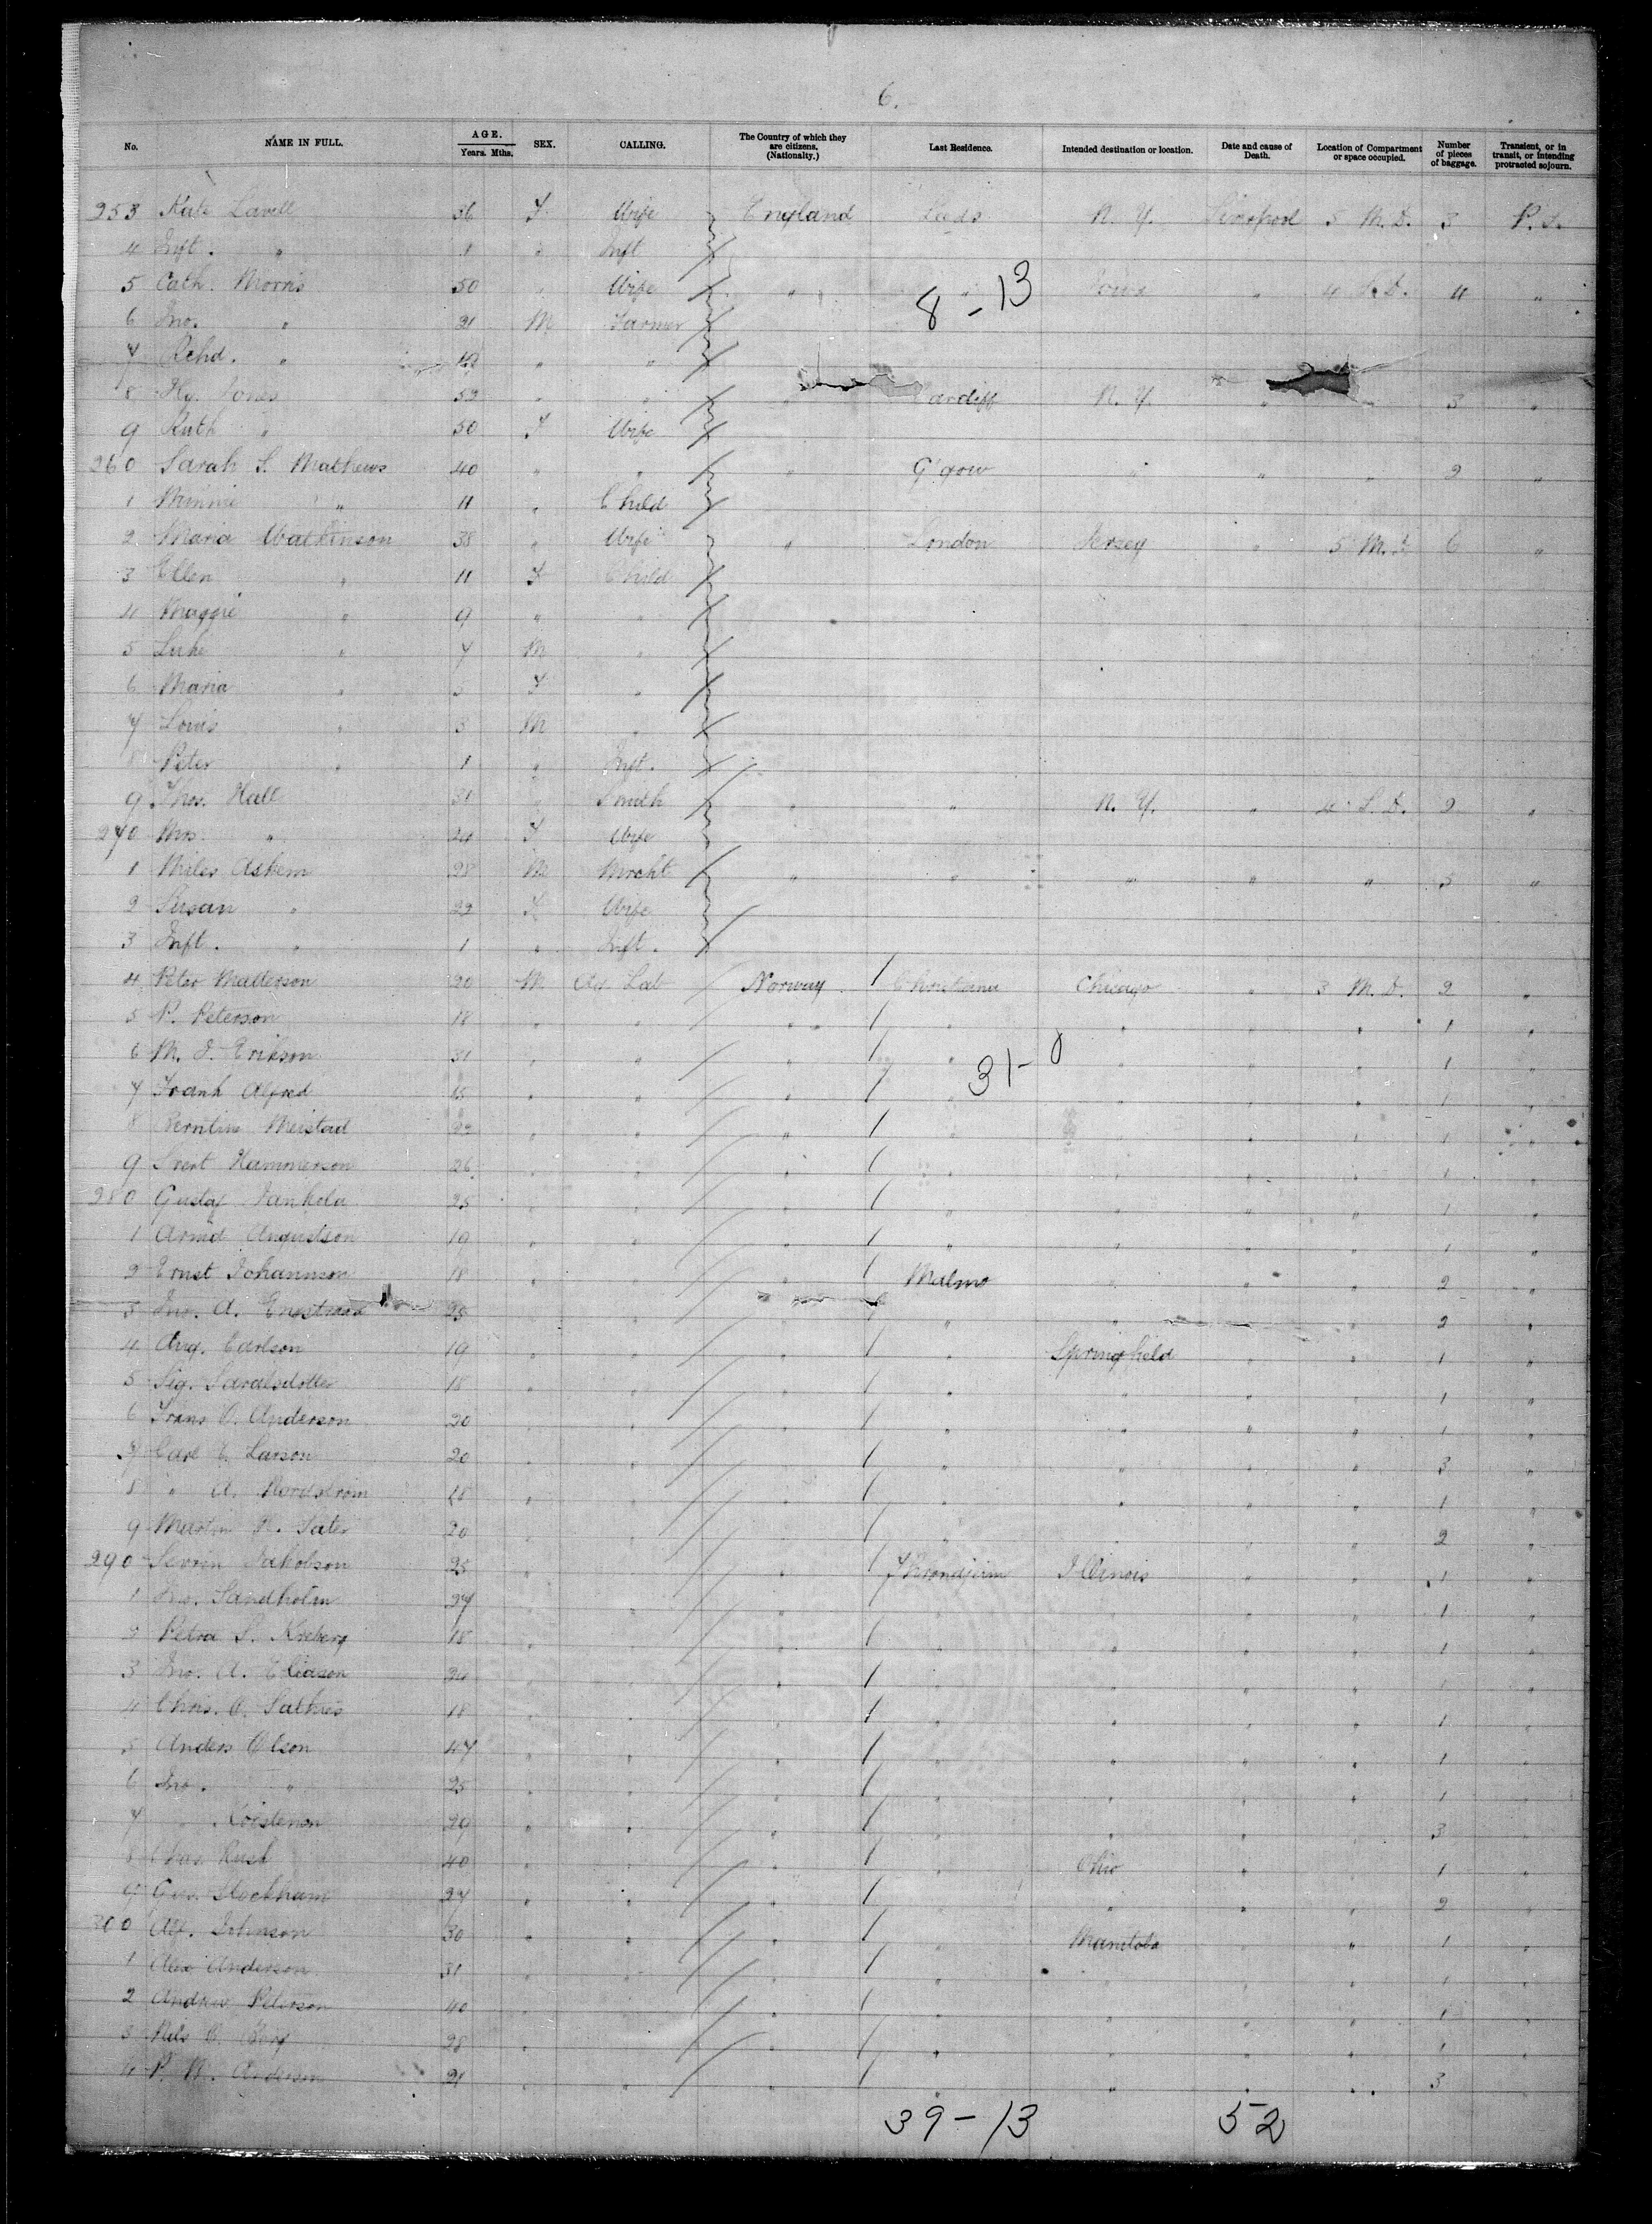 6.
No. NAME IN FULL. AGE. Years. Mths. SEX. CALLING. The Country of which they are citizens. (Nationality.) Last Residence. Intended destination or location. Date and cause of Death. Location of Compartment or space occupied. Number of pieces of baggage. Transient, or in transit, or intending protracted sojourn.
253 Kate Lavell 36 F Wife England Leeds N. Y. Liverpool 5 M. D. 3 P. S.
4 Inft. " 1 " Inft
5 Cath. Morris 50 " Wife " " Iowa " 4 S. D. 4 "
6 Jno. " 21 M Farmer
8-13
7 Rchd. " 19 " "
8 Hy. Jones 52 " " " Cardiff N. Y. " " 3 "
9 Ruth " 50 F Wife
260 Sarah S. Mathews 40 " " " G'gow " " " 2 "
1 Minnie " 11 " Child
2 Maria Watkinson 38 " Wife " London Jersey " 5 M. D. 6 "
3 Ellen " 11 F Child
4 Maggie " 9 " "
5 Luke " 7 M "
6 Maria " 5 F "
7 Louis " 3 M "
8 Peter " 1 " Inft.
9 Thos. Hall 31 " Smith " " N. Y. " 4 S. D. 2 "
270 Mrs. " 24 F Wife
1 Miles Askem 28 M Mrcht " " " " " 3 "
2 Susan " 22 F Wife
3 Inft. " 1 " Inft.
4 Peter Matterson 20 M Ag Lab Norway Christiana Chicago " 3 M. D. 2 "
5 P. Peterson 18 " " " " " " " 1 "
6 M. J. Erikson 31 " " " " " " " 1 "
31-0
7 Frank Alfred 15 " " " " " " " 1 "
8 Meistad " " " " " " " 1 "
9 Hammerson 26 " " " " " " " 1 "
280 Gustaf 25 " " " " " " " 1 "
1 Arvid Angustson 19 " " " " " " " 1 "
2 Ernst Johannson 18 " " " Malmo " " " 2 "
3 Jno. A. 25 " " " " " " " 2 "
4 Aug. Carlson 19 " " " " Springfield " " 1 "
5 Sig. 18 " " " " " " " 1 "
6 Frans O. Anderson 20 " " " " " " " 1 "
7 Carl E. Larson 20 " " " " " " " 3 "
8 " A. Nordstrom 18 " " " " " " " 1 "
9 Martin 20 " " " " " " " 2 "
290 Sevrin Jakobson 25 " " " Throndjeim Illinois " " 1 "
1 Jno. Sandholm 27 " " " " " " " 1 "
2 Petra S. 18 " " " " " " " 1 "
3 Jno. A. Eliason 24 " " " " " " " 1 "
4 Chris. O. 18 " " " " " " " 1 "
5 Anders Olson 47 " " " " " " " 1 "
6 Jno. " 25 " " " " " " " 1 "
7 " 29 " " " " " " " 3 "
8 Chas. Rush 40 " " " " Ohio " " 1 "
9 Geo. Stockham 27 " " " " " " " 2 "
300 Alf. Johnson 30 " " " " Manitoba " " 1 "
1 Anderson 31 " " " " " " " 1 "
2 Andrew Peterson 40 " " " " " " " 1 "
3 Nils O. Berg 28 " " " " " " " 1 "
4 P. M. Anderson 21 " " " " " " " 3
39-13 52